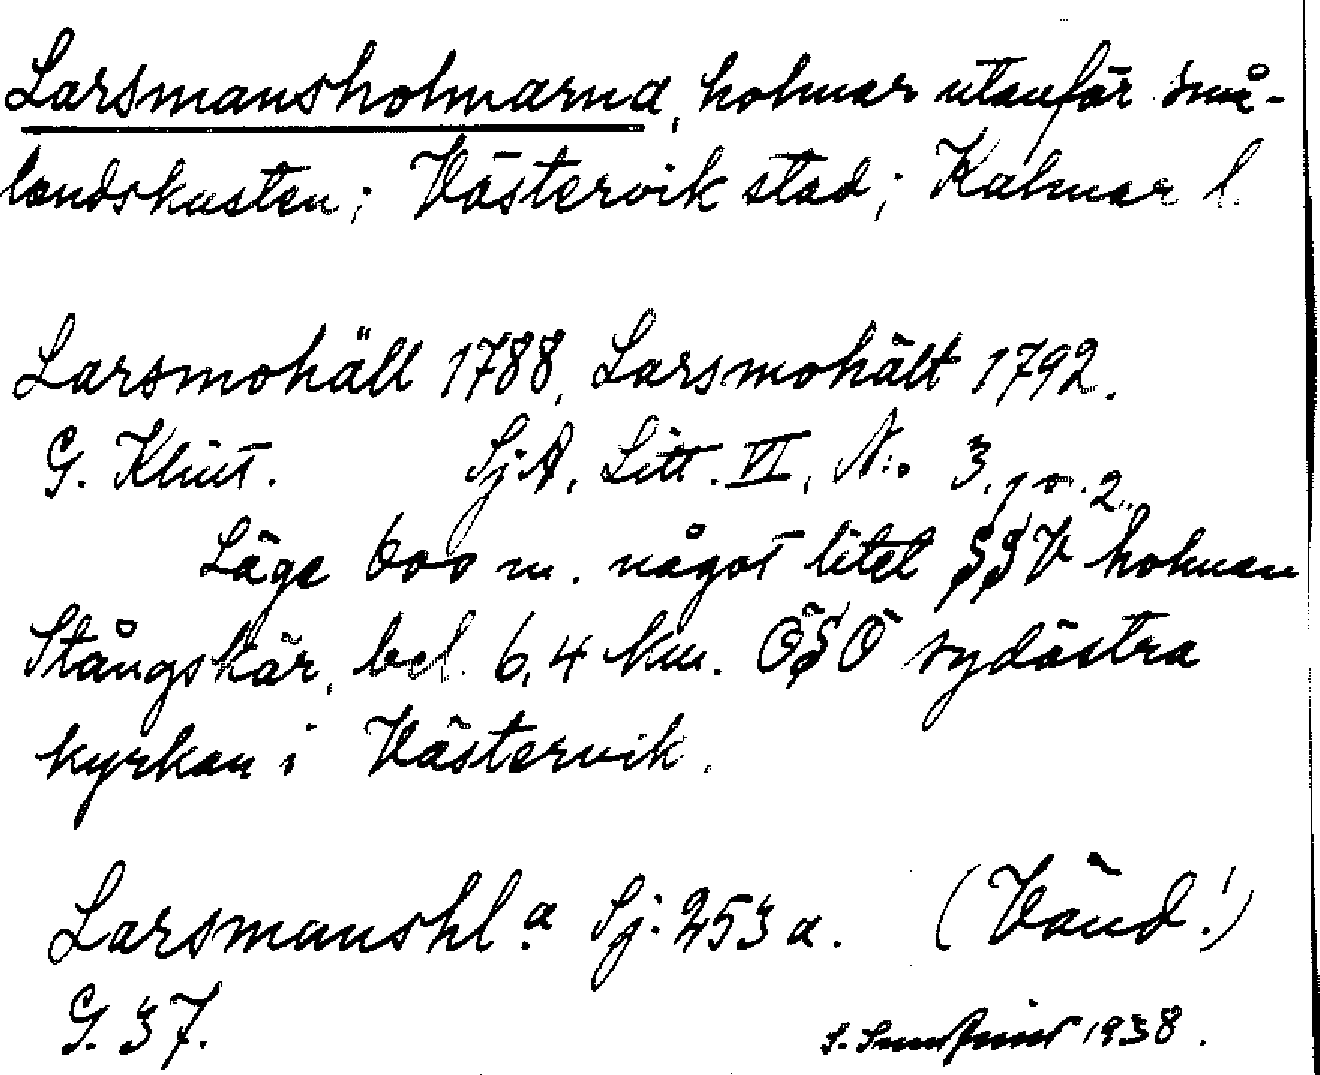 Larsmansholmarna, holmar utanför små-
landskusten; Västervik stad; Kalmar l.
Larsmohäll 1788, Larsmohält 1792.
G. Klint. SjA, Litt. VI, N:o 3, 2
Läge 600 m. något litet SSV holmen
Stångskär, bel. 6,4 km. ÖSÖ sydöstra
kyrkan i Västervik.
Larsmanshl:a Sj: 253 a. (Vänd!)
G. 37.
S. 1938.